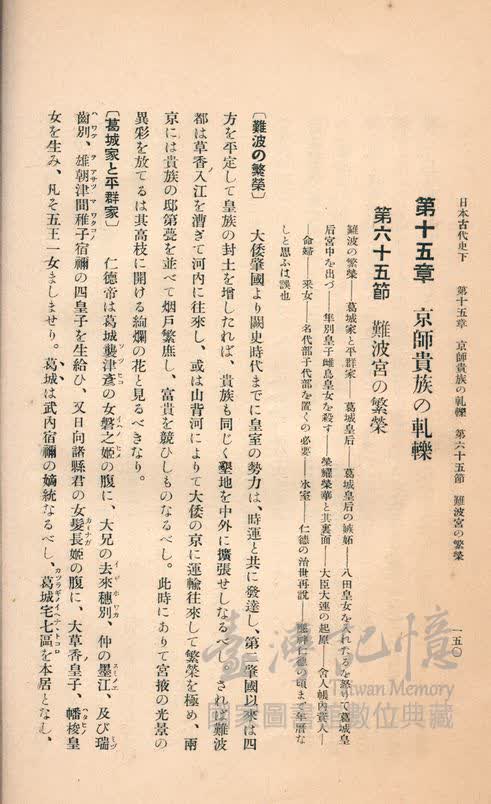 日本古代史下　第十五章　京師貴族の軋轢　第六十五節　難波宮の繁榮
一五〇
第十五章　京師貴族の軋轢
第六十五節　難波宮の繁榮
難波の繁榮――葛城家と平群家　葛城皇后　葛城皇后の嫉妬――八田皇女を入れたるを怒て葛城皇
后宮中を出づ――隼別皇子雌鳥皇女を殺す　榮耀榮華と其裏面――大臣大連の起原――舍人帳內資人―
―命婦――采女――名代部子代部を置くの必要――氷室――仁德の治世再說――應神仁德の頃まで年曆な
しと思ふは誤也
〔難波の繁榮〕　大倭肇國より闕史時代までに皇室の勢力は、時運と共に發達し、第二肇國以來は四
方を平定して皇族の封土を增したれば、貴族も同じく墾地を中外に擴張せしなるべし、されば難波
都は草香入江を漕ぎて河內に往來し、或は山背河によりて大倭の京に運輸往來して繁榮を極め、兩
京には貴族の邸第甍を並べて烟戶繁庶し、富貴を競ひしものなるべし。此時にありて宮掖の光景の
異彩を放てるは其高枝に開ける絢爛の花と見るべきなり。
〔葛城家と平群家〕　仁德帝は葛城襲津彥の女磐之姬の腹に、大兄の去來穗別、仲の墨江、及び瑞
齒別、雄朝津間稚子宿禰の四皇子を生給ひ、又日向諸縣君の女髮長姬の腹に、大草香皇子、幡梭皇
女を生み、凡そ五王一女ましませり。葛城は武內宿禰の嫡統なるべし、葛城宅七區を本居となし、
臺灣記憶
Taiwan Memory
國家圖書館數位典藏